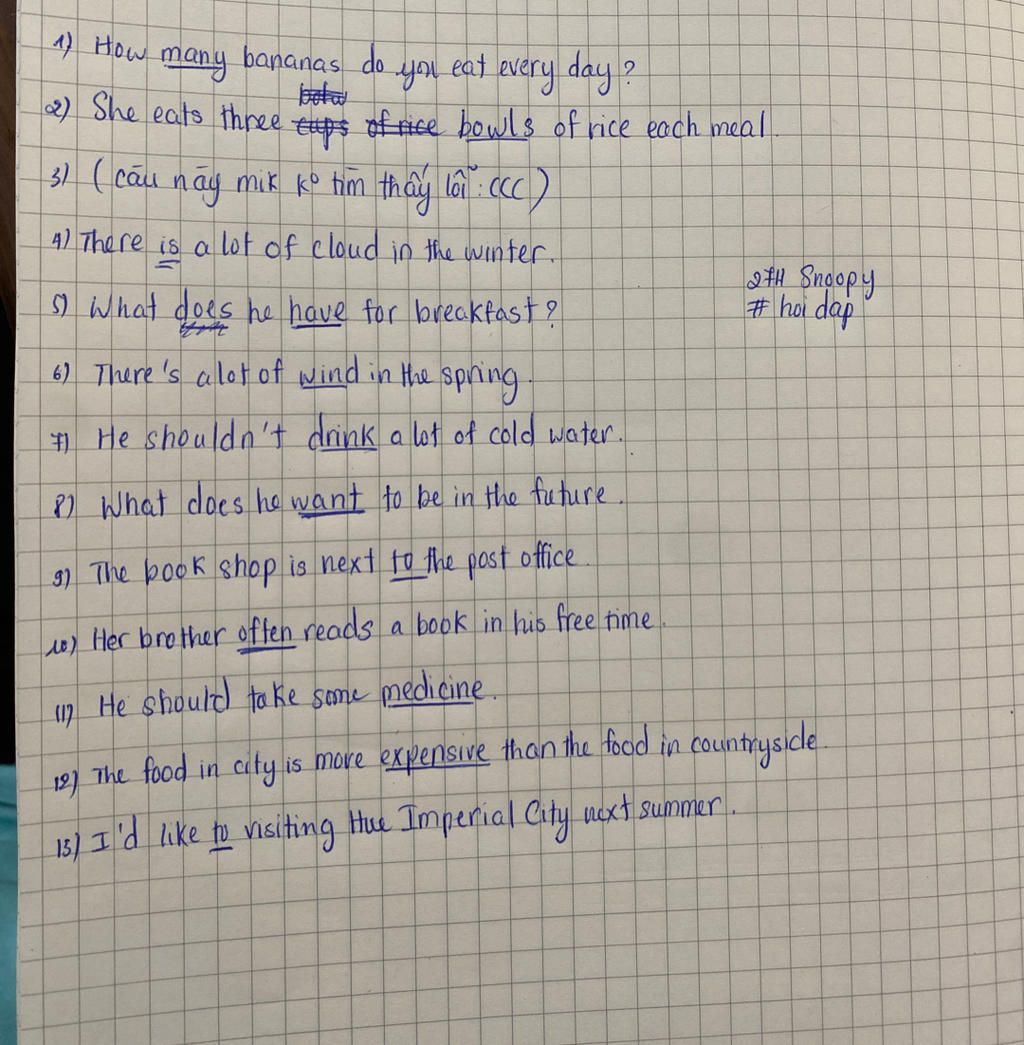 1) How many bananas do you eat every day?
2) She eats three cups of rice bowls of rice each meal.
3) (câu này mik k° tìm thấy lỗi :(((()
4) There is a lot of cloud in the winter.
27H Snoopy
# hoi dap
5) What does he have for breakfast?
6) There's a lot of wind in the spring.
7) He shouldn't drink a lot of cold water.
8) What does he want to be in the future.
9) The book shop is next to the post office.
10) Her brother often reads a book in his free time.
11) He should take some medicine.
12) The food in city is more expensive than the food in countryside.
13) I'd like to visiting Hue Imperial City next summer.